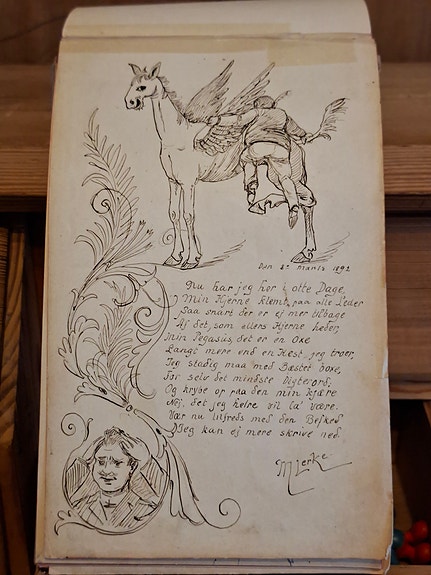 Den 8de Marts 1892
Nu har jeg her i otte Dage,
Min Hjerne klemt paa alle Leder
Saa snart der er ej mer tilbage
Af det, som ellers Hjerne heder,
Min Pegasus, det er en Oxe
Langt mere end en Hest, jeg troer,
Jeg stadig maa med Bæstet boxe,
For selv det mindste Digterord.
Og krybe op paa den min kjære
Nej, det jeg helre vil la' være.
Vær nu tilfreds med den Besked
Jeg kan ej mere skrive ned.